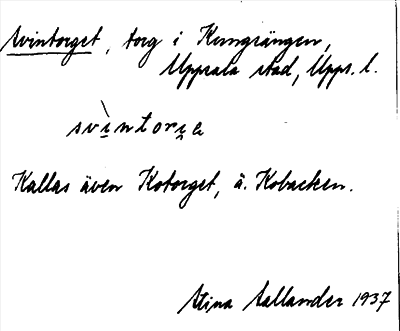 Svintorget, torg i Kungsängen,
Uppsala stad, Upps. l.
Kallas även Kotorget, ä. Kobacken.
Stina Sallander 1937